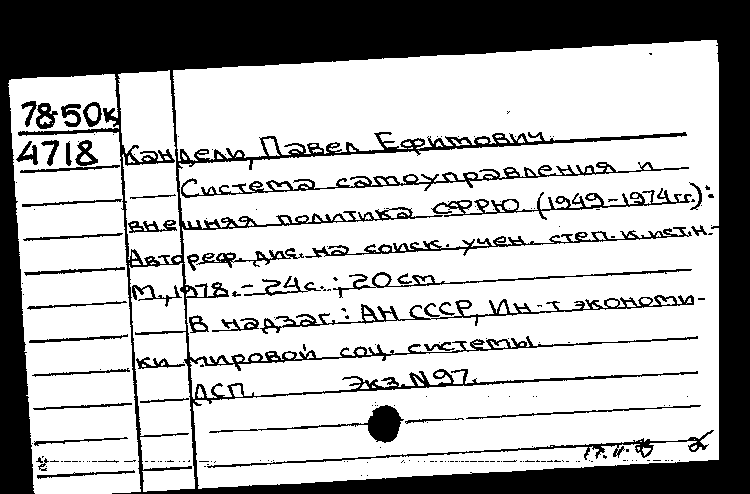 78-50к
4718
Кандель, Павел Ефимович.
Система самоуправления и
внешняя политика СФРЮ (1949-1974гг.):
Автореф. дис. на соиск. учен. степ. к.ист.н.-
М., 1978.- 24с.; 20см.
В надзаг.: АН СССР, Ин-т экономи-
ки мировой соц. системы.
ДСП. Экз. N 97.